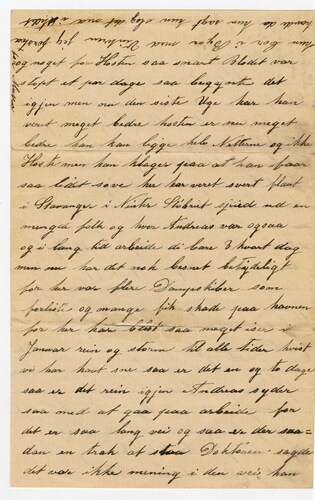 og noget for Hosten saa snart Blodet var
stopt et par dage saa begynte det
igjen men nu den siste Uge har han
veret meget bedre hosten er nu meget
bedre han kan ligge hele Netterne og ikke
Hoste men han klager paa at han faar
saa lidet sove her har veret svert flaut
i Stavanger i Vinter Støberiet en
mengde folk og hvor Andreas var ogsaa
og i lang tid arbeide di bare 3 kvart dag
men nu har det nok besnet betydeligt
for her var flere Dampskiber som
forliste og mange fik skade paa havnen
for her har blast saa meget iser i
Januar rein og storm til alle tider hvist
vi har havt sne saa er det en og to dage
saa er det rein igjen Andreas syder
saa med at gaa paa arbeide for
det er saa lang vei og saa er der saa-
dan en trak af Doktoren sagde
det var ikke mening i den vei han